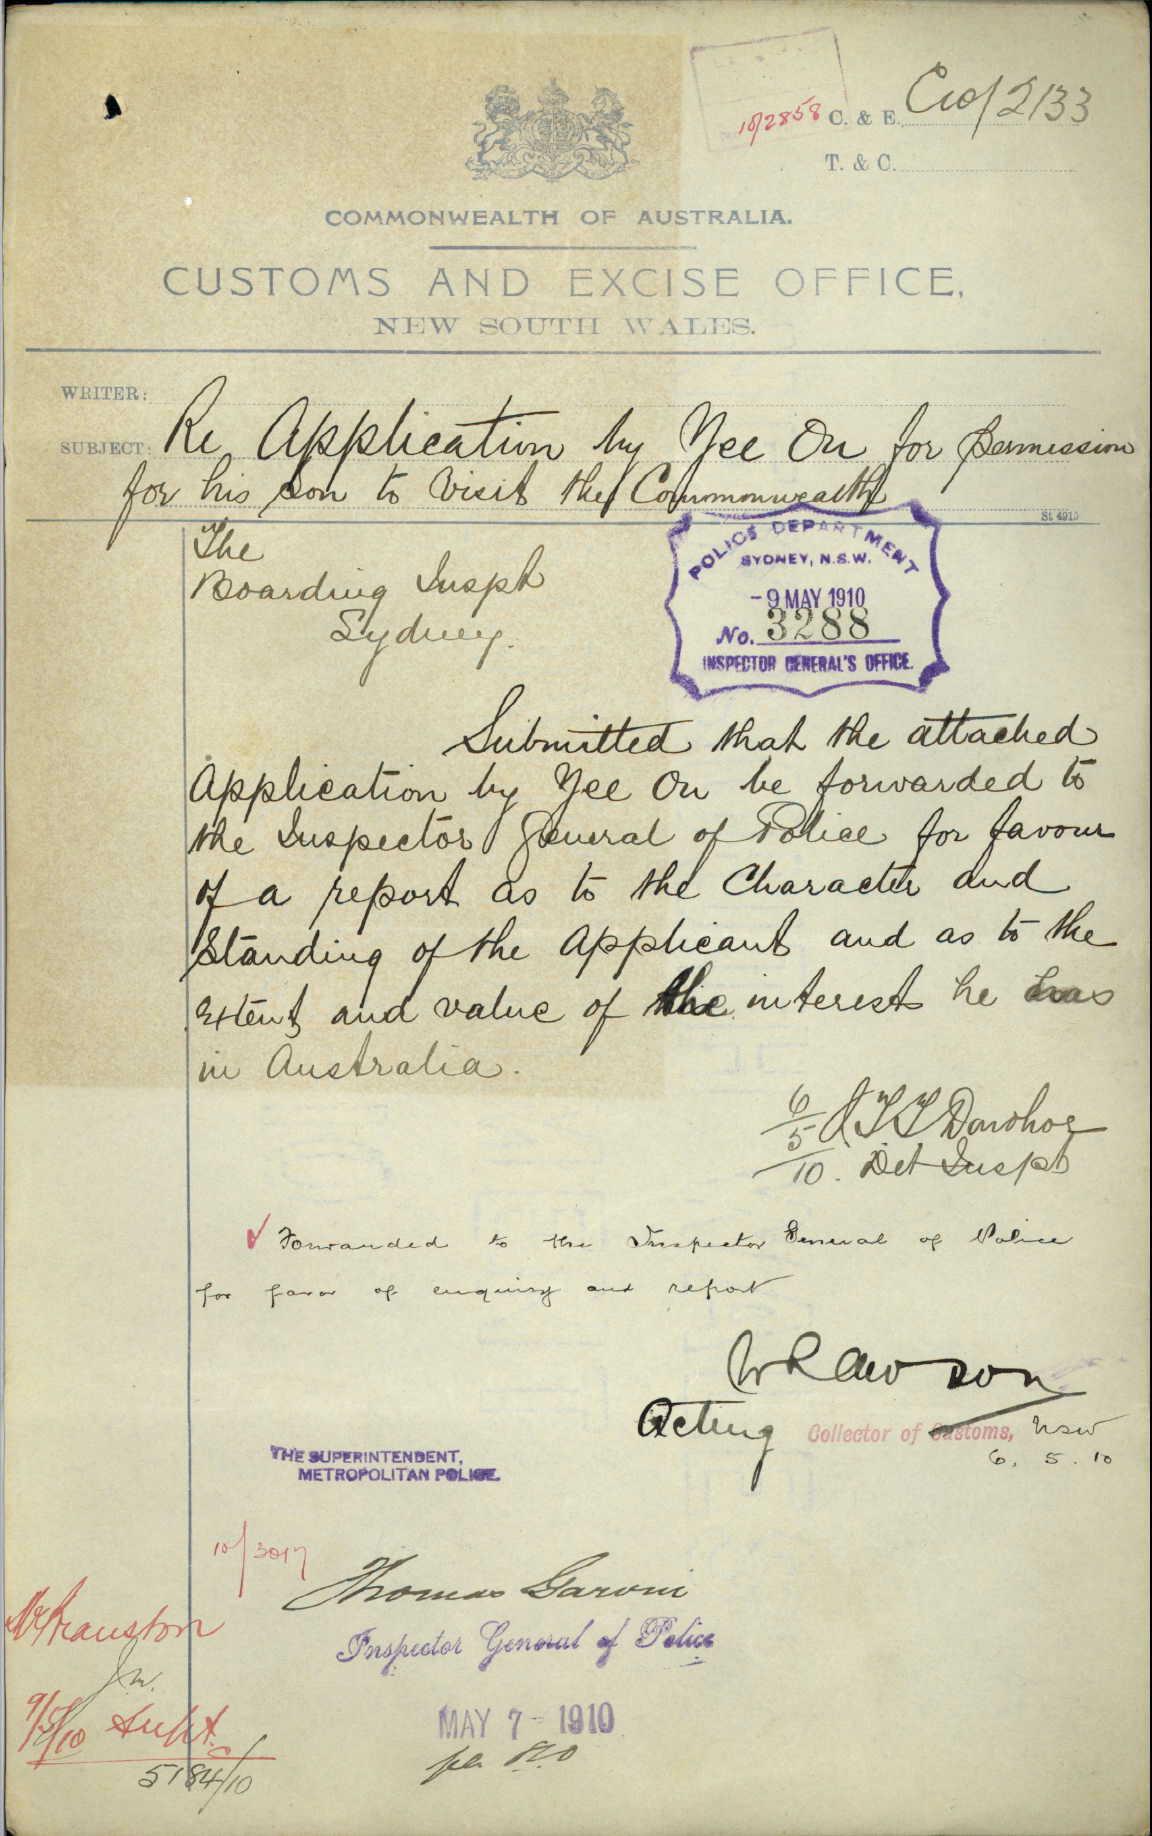 10/2858
C. & E. C10/2133
T. & C.
COMMONWEALTH OF AUSTRALIA.
CUSTOMS AND EXCISE OFFICE,
NEW SOUTH WALES.
WRITER:
SUBJECT: Re Application by Yee On for permission
for his son to visit the Commonwealth
St 4910
The
Boarding Inspr
Sydney.
POLICE DEPARTMENT
SYDNEY, N.S.W.
-9 MAY 1910
No. 3288
INSPECTOR GENERAL'S OFFICE.
Submitted that the attached
Application by Yee On be forwarded to
the Inspector General of Police for favour
of a report as to the Character and
Standing of the Applicant and as to the
extent and value of the interests he has
in Australia.
6/5/10. J T T Donohoe
Det Inspr
Forwarded to the Inspector General of Police
for favor of enquiry and report
Acting Collector of Customs, NSW
6. 5. 10
THE SUPERINTENDENT,
METROPOLITAN POLICE.
10/3017
Thomas Garvin
Inspector General of Police
MAY 7 - 1910
per
9/5/10 Supt.
5184/10